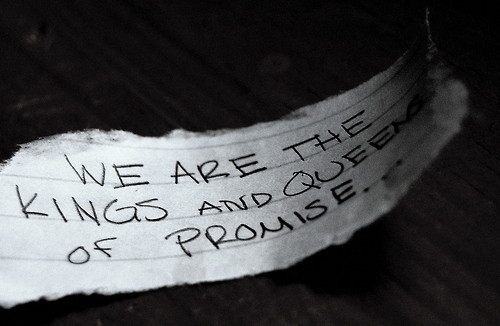 WE ARE THE
KINGS AND QUEENS
OF PROMISE...